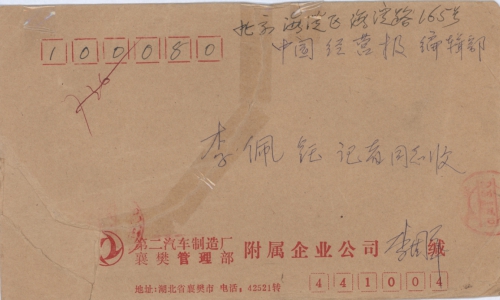 北京海淀区海淀路165号
100080
中国经营报编辑部
李佩钰记者同志收
第二汽车制造厂
襄樊管理部
附属企业公司
缄
地址:湖北省襄樊市 电话:42521转
441004